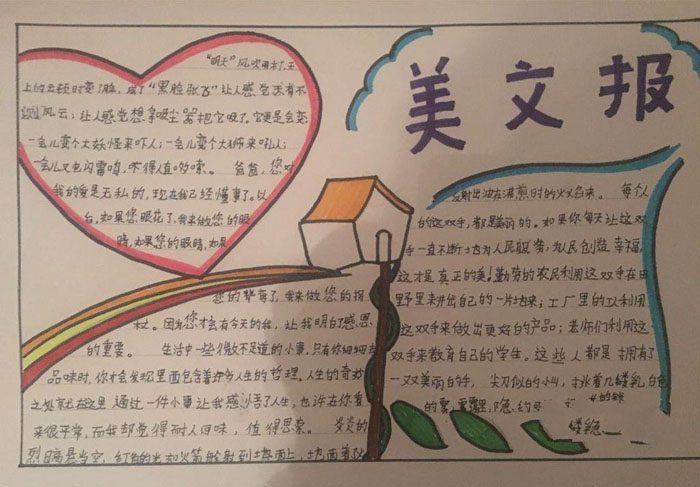 美文报
"明天"风吹来了，天
上的云顿时变了脸，成了"黑脸张飞"让人感觉天有不
测风云；让人感觉想拿吸尘器把它吸了。它更是会变
一会儿变个大妖怪来吓人；一会儿变个大狮来吼人；
一会儿又电闪雷鸣，不得人直哆嗦。 爸爸，您对
我的爱是无私的，现在我已经懂事了。以
后，如果您眼花了，我来做您的眼
睛，如果您的眼睛，如果
您的背弯了，我来做您的拐
杖。因为您才会有今天的我，让我明白了感恩
的重要。 生活中一些微不足道的小事，只有你细细去
品味时，你才会发现里面包含着许多人生的哲理。人生的奇妙
之处就在这里，通过一件小事让我感悟了人生，也许在你看
来很平常，而我却觉得耐人回味，值得思索。 炎炎的
烈日高悬当空，红色的光如火箭般射到地面上，地面着
反射出油在沸煎时的火火白来。 每个人
的这双手，都是美丽的。如果你每天让这双
手一直不断地为人民服务，为人民创造幸福，
这才是真正的美！勤劳的农民利用这双手在田
野里耕出自己的一片地来；工厂里的工人利用
这双手来做出更好的产品；老师们利用这
双手来教育自己的学生。这些人都是拥有了
一双美丽的手， 尖刀似的小山，挑着几缕乳白色
的雾，雾霭里，隐约可
缕绕